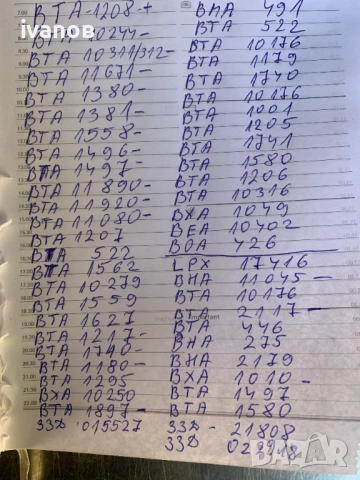 ivanov
BTA-1208-+
BTA 10244-
BTA 10311/312-
BTA 11671-
BTA 1380-
BTA 1381-
BTA 1558-
BTA 1496-
BTA 1497-
BTA 11890-
BTA 11920-
BTA 11080-
BTA 1207
BTA 522
BTA 1562
BTA 10279
BTA 1559
BTA 1627
BTA 1217-
BTA 1740-
BTA 1180-
BTA 1295
BXA 10250
BTA 1897-
33D 015527
BHA 491
BTA 522
BTA 10176
BTA 1179
BTA 1740
BTA 10176
BTA 1001
BTA 1205
BTA 1741
BTA 1580
BTA 1206
BTA 10316
BXA 1049
BEA 10402
BOA 426
LPX 17416
BHA 11045-
BTA 10176
BTA 2117-
BTA 446
BHA 275
BHA 2179
BXA 1010-
BTA 1497
BTA 1580
33D - 21808
33D
bazar.bg